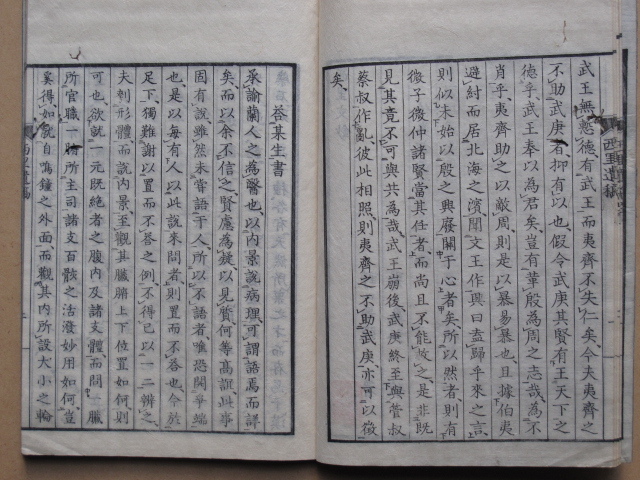 武王無慙德有武王而夷齊不失仁矣今夫夷齊之
不助武庚者抑有以也假令武庚其賢有王天下之
德乎武王奉以為君矣豈有革殷為周之志哉為不
肖乎夷齊助之以敵周則是以暴易暴也且據伯夷
避紂而居北海之濱聞文王作興曰盍歸乎來之言
則似未始以殷之興廢關于心者矣所以然者則有
微子微仲諸賢當其任者而尚且不能救之是非既
見其竟不可與共為哉武王崩後武庚終至與管叔
蔡叔作亂彼此相照則夷齊之不助武庚亦可以徵
矣
西里遺稿
答某生書
承諭蘭人之為醫也以內景說病理可謂語焉而詳
矣而以余不信之賢慮為疑以見質何等高訊此事
固有說雖然未嘗語于人所以不語者唯恐開爭端
也是以每有人以此說來問者則置而不答也今於
足下獨難謝以置而不答之例不得已以一二辨之
夫刺形體而說內景至觀其臟腑上下位置如何則
可也欲就一元既絕者之腹內及諸支體而問一臟
所官職一腑所主司諸支百骸之活潑妙用如何豈
奚得如說自鳴鐘之外面而觀其內所設大小之輪